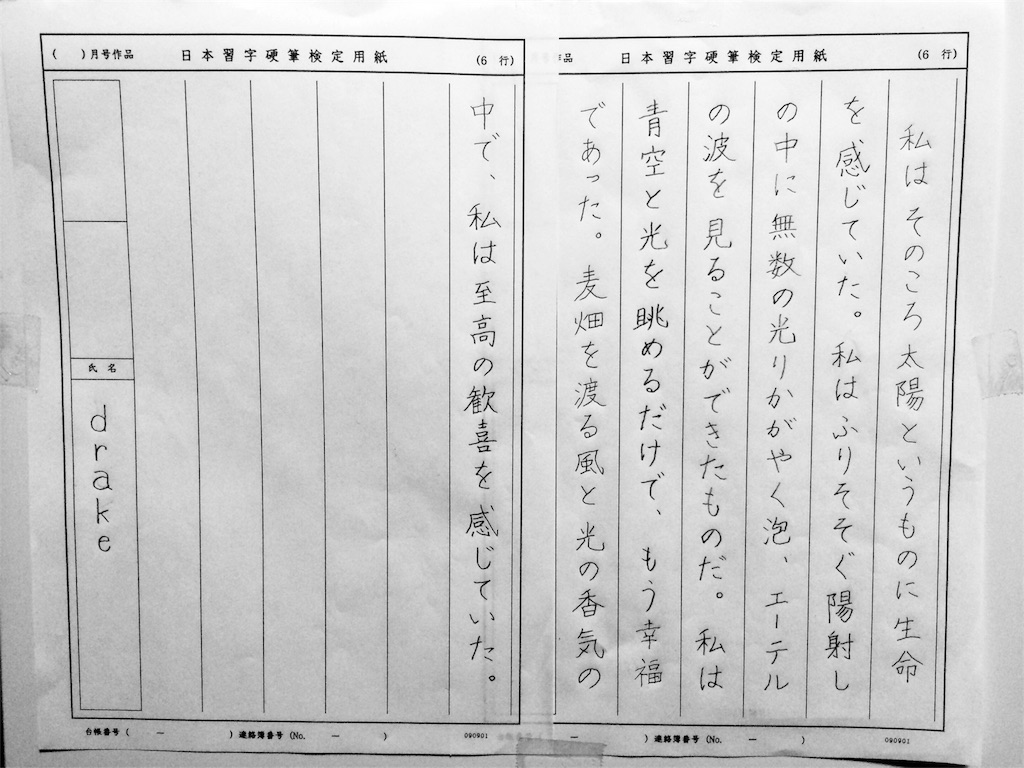 日本習字硬筆検定用紙
(6 行)
私はそのころ太陽というものに生命
を感じていた。私はふりそそぐ陽射し
の中に無数の光りかがやく泡、エーテル
の波を見ることができたものだ。私は
青空と光を眺めるだけで、もう幸福
であった。麦畑を渡る風と光の香気の
作品
ー
)連絡簿番号(No. ー )
090901
( )月号作品
日本習字硬筆検定用紙
(6 行)
中で、私は至高の歓喜を感じていた。
氏名
drake
台帳番号( ー )連絡簿番号(No. ー )
090901